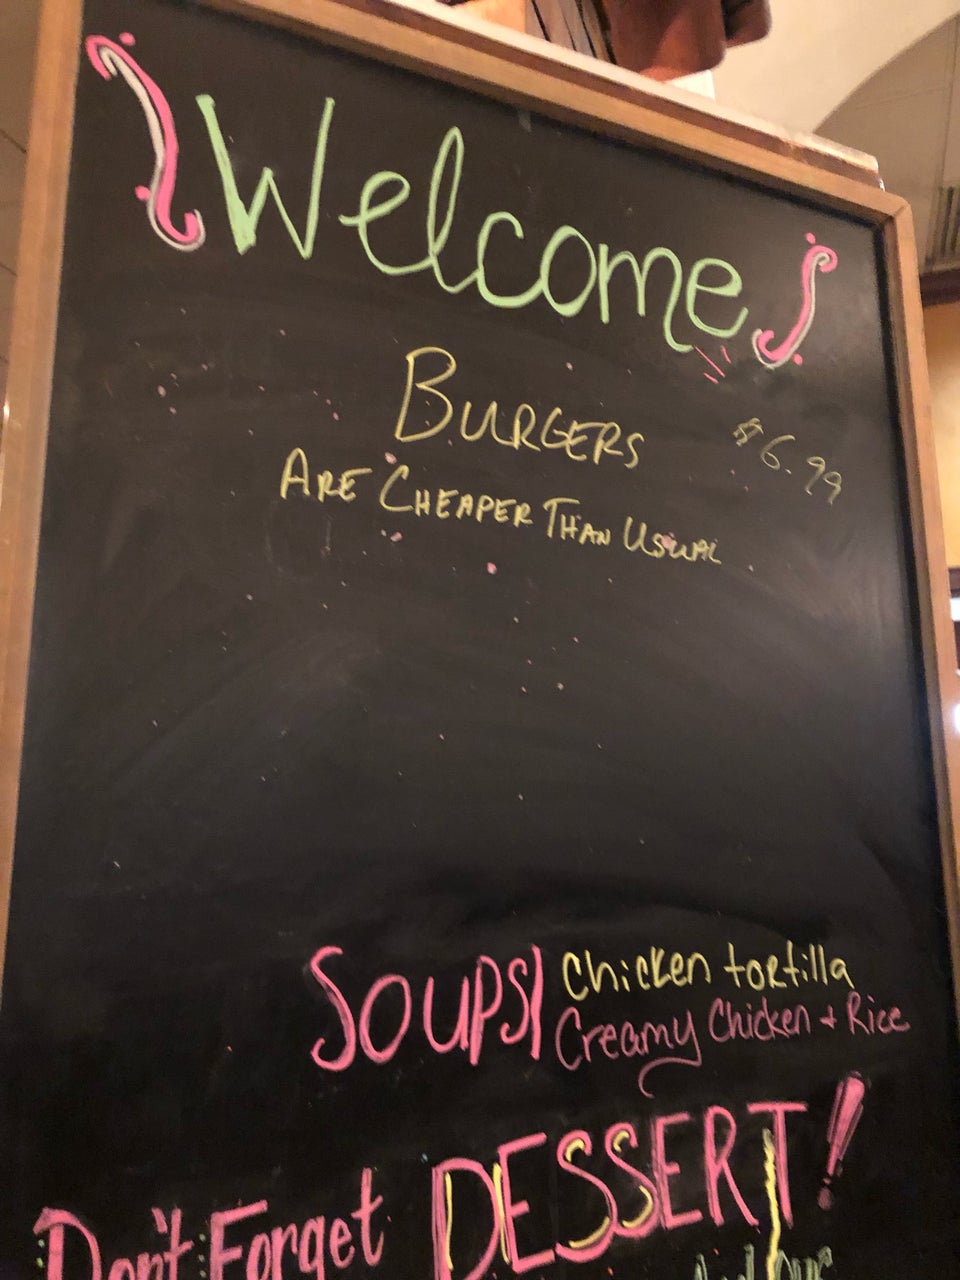 Welcome
BURGERS $6.99
ARE CHEAPER THAN USUAL
SOUPS| Chicken tortilla
Creamy Chicken + Rice
Don't Forget DESSERT!